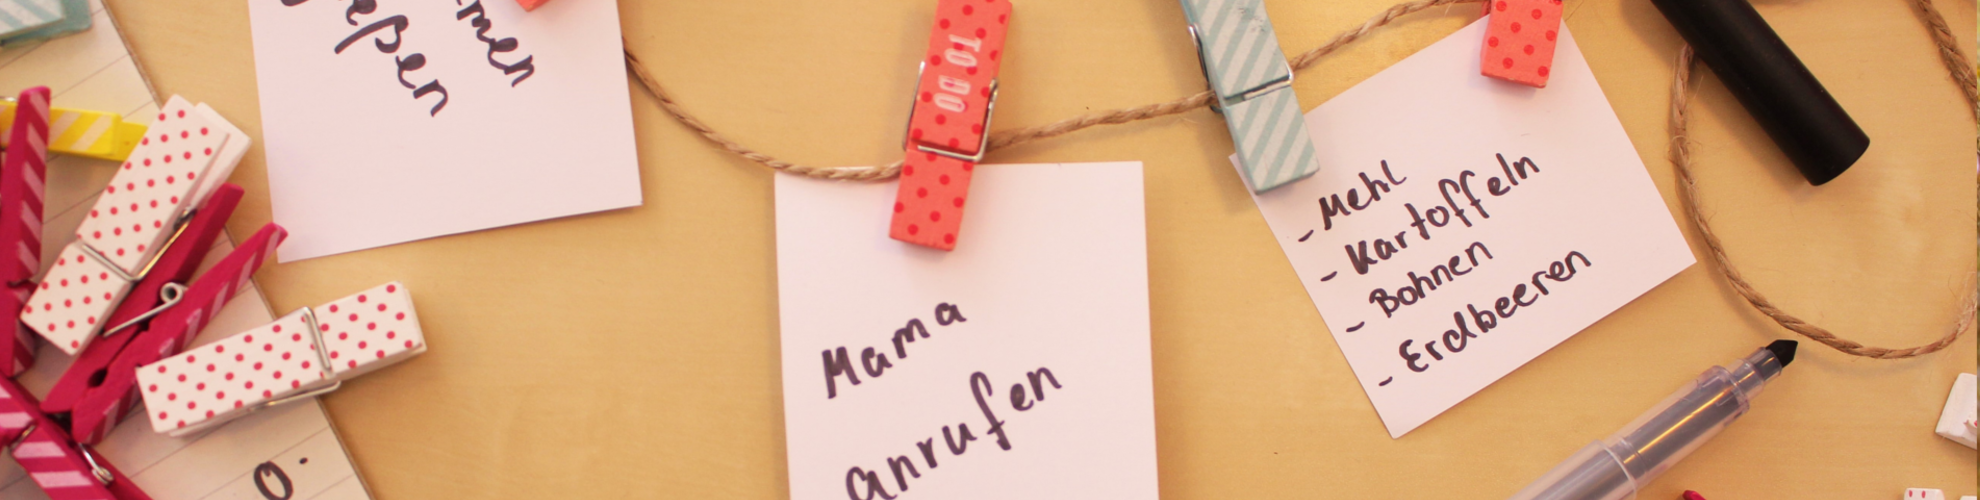 TO DO
Mama
anrufen
- Mehl
- Kartoffeln
- Bohnen
- Erdbeeren